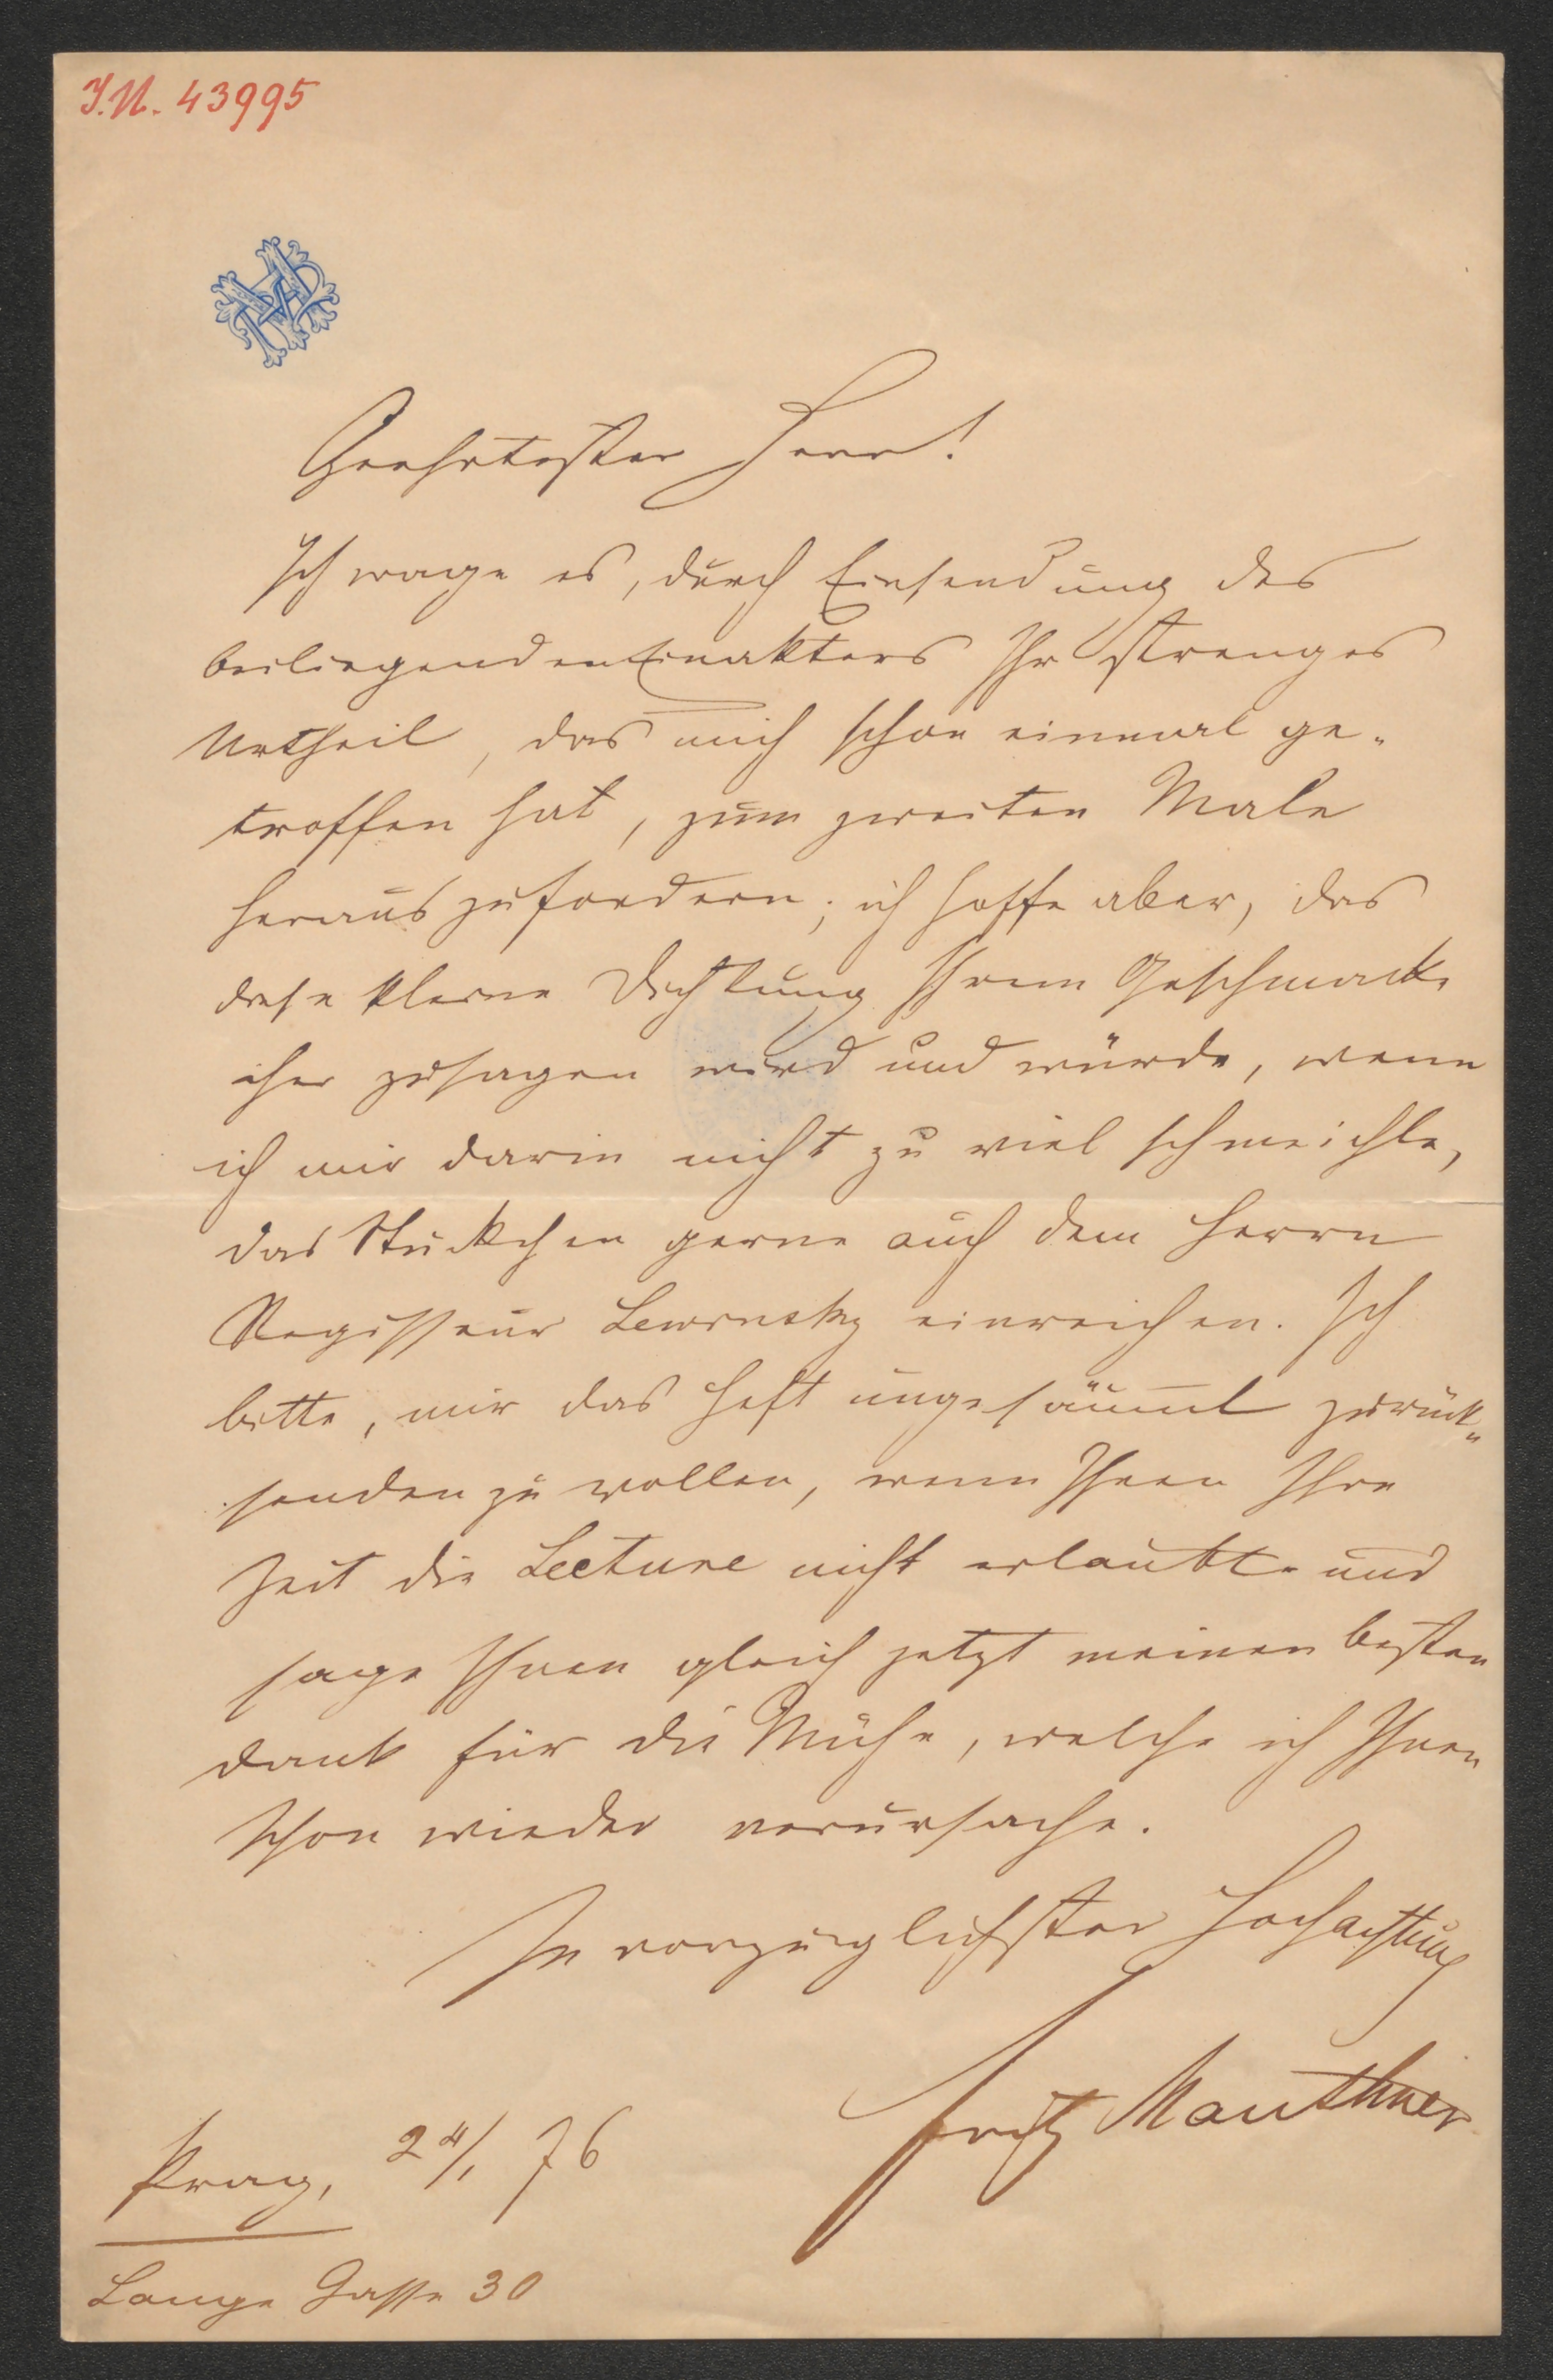 I.N. 43995
Geehrtester Herr!
Ich wage es, durch Einsendung des
beiliegenden Einakters Ihr strenges
Urtheil, das mich schon einmal ge-
troffen hat, zum zweiten Male
herauszufordern; ich hoffe aber, das
diese kleine Dichtung Ihrem Geschmacke
eher zusagen wird und würde, wenn
ich mir darin nicht zu viel schmeichle,
das Stückchen gerne auch dem Herrn
Regisseur Lewinsky einreichen. Ich
bitte, mir das Heft ungesäumt zurück-
senden zu wollen, wenn Ihnen Ihre
Zeit die Lecture nicht erlaubte und
sage Ihnen gleich jetzt meinen besten
Dank für die Mühe, welche ich Ihnen
schon wieder verursache.
In vorzüglichster Hochachtung
Fritz Mauthner
Prag, 24/1 76
Lange Gasse 30